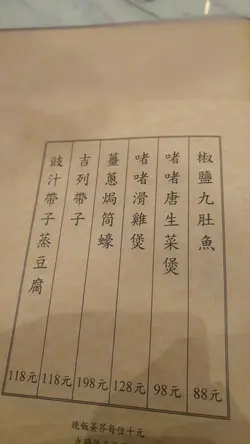 椒鹽九肚魚
88元
啫啫唐生菜煲
98元
啫啫滑雞煲
128元
薑蔥焗筒蠔
198元
吉列帶子
118元
豉汁帶子蒸豆腐
118元
晚飯茶芥每位十元